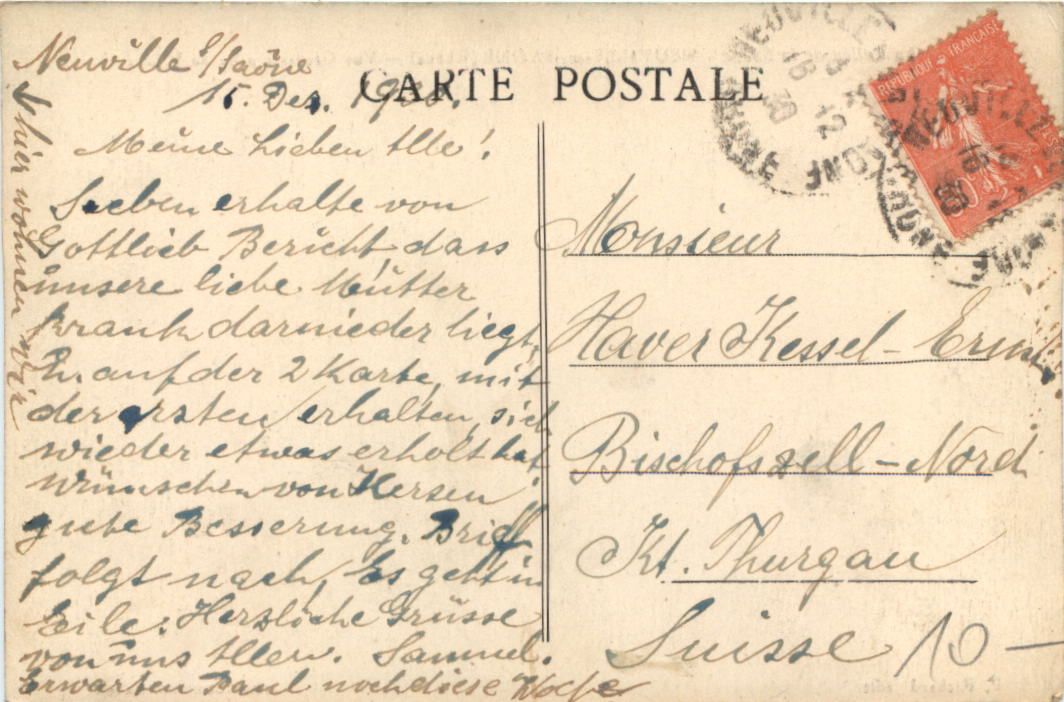 Neuville s/Saône
15. Dez. 1930.
CARTE POSTALE
Meine Lieben Alle!
Soeben erhalte von
Gottlieb Bericht, dass
unsere liebe Mutter
krank darnieder liegt,
u. auf der 2 Karte, mit
der ersten erhalten, sich
wieder etwas erholt hat
Wünschen von Herzen
gute Besserung. Brief
folgt nach, Es geht in
Eile. Herzliche Grüsse
von uns Allen. Samuel.
Erwarten Paul noch diese Woche
hier wohnen wir
Monsieur
Xaver Kessel-
Bischofszell-Nord
Kt. Thurgau
Suisse
10-
REPUBLIQUE FRANÇAISE
NEUVILLE
RHONE
16
12
30